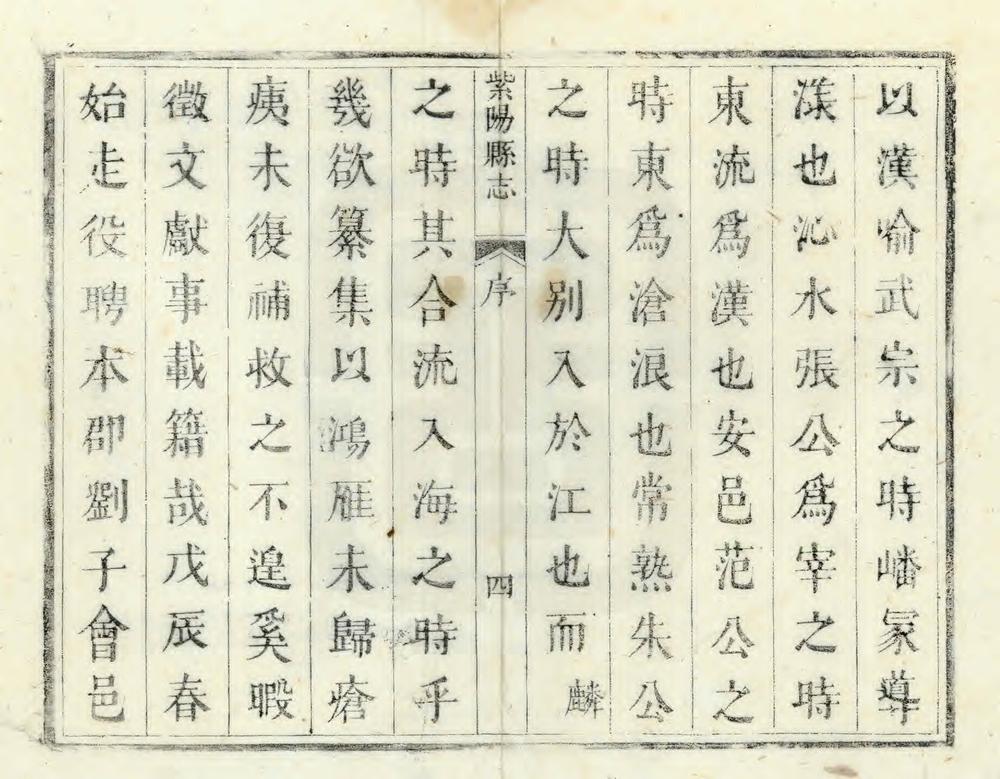 以漢喻武宗之時嶓冢導
漾也沁水張公爲宰之時
東流爲漢也安邑范公之
時東爲滄浪也常熟朱公
之時大別入於江也而麟
紫陽縣志 序 四
之時其合流入海之時乎
幾欲纂集以鴻雁未歸瘡
痍未復補救之不遑奚暇
徵文獻事載籍哉戊辰春
始走役聘本郡劉子會邑